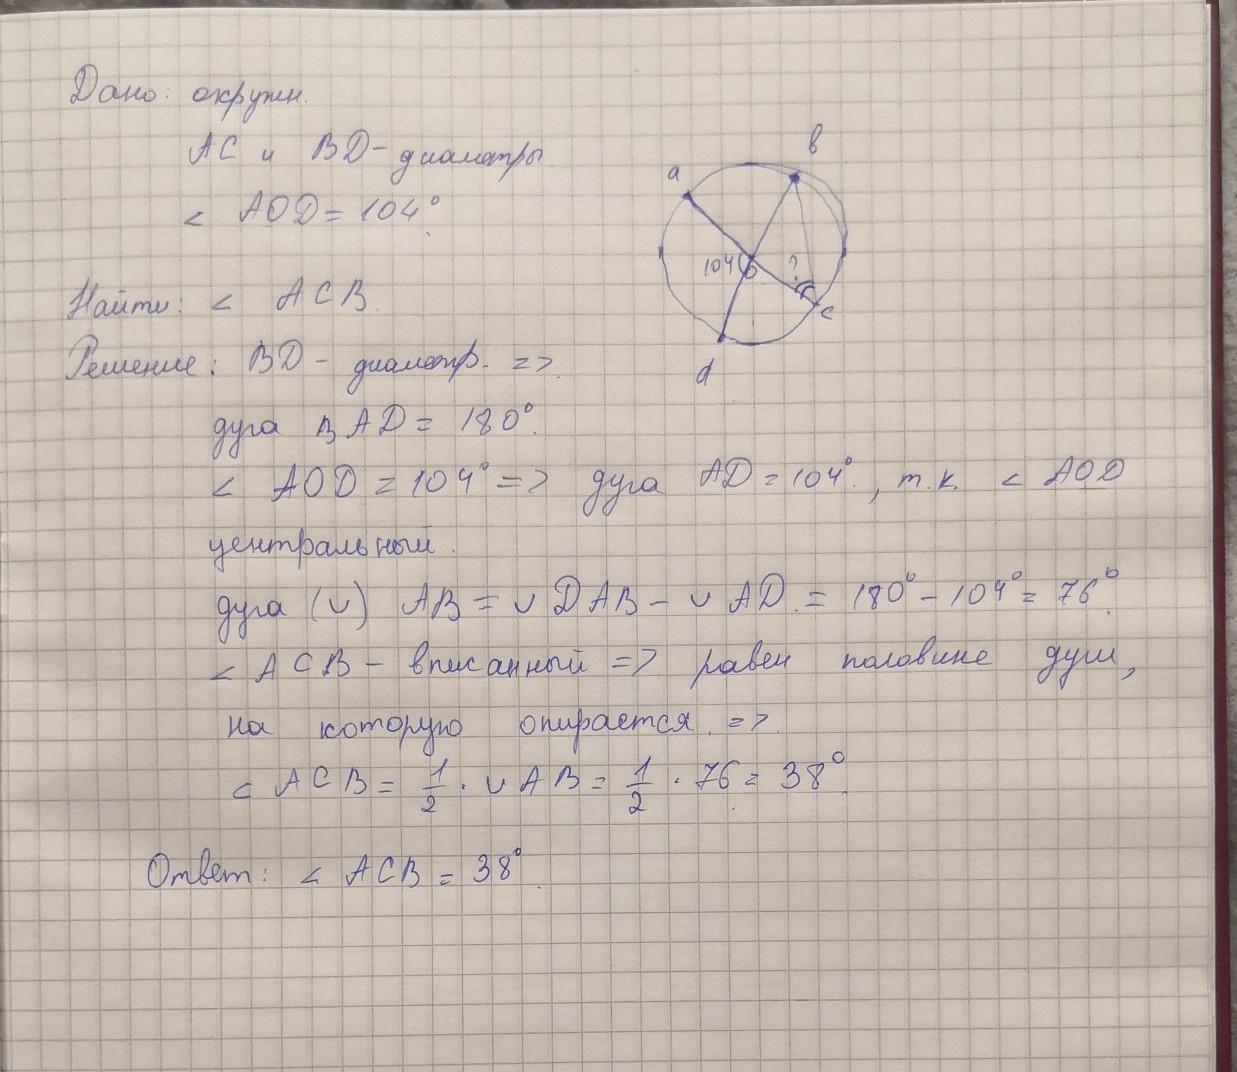 Дано: окружн.
AC и BD - диаметры
< AOD = 104°.
a
b
104
?
c
d
Найти: < ACB.
Решение: BD - диаметр. =>.
дуга BAD = 180°.
< AOD = 104° => дуга AD = 104°., т.к. < AOD
центральный.
дуга (∪) AB = ∪ DAB - ∪ AD. = 180° - 104° = 76°.
< ACB - вписанный => равен половине дуги,
на которую опирается. =>.
< ACB = 1/2 · ∪ AB = 1/2 · 76 = 38°.
Ответ: < ACB = 38°.